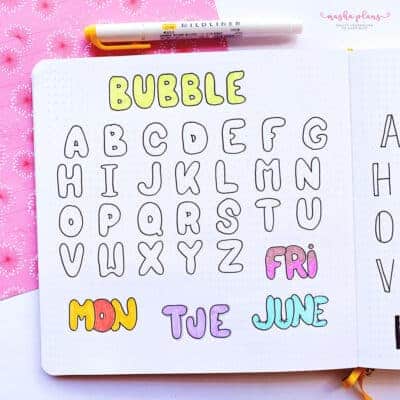 masha plans
MILDLINER
BUBBLE
A B C D E F G
H I J K L M N
O P Q R S T U
V W X Y Z
FRI
MON TUE JUNE
A
H
O
V